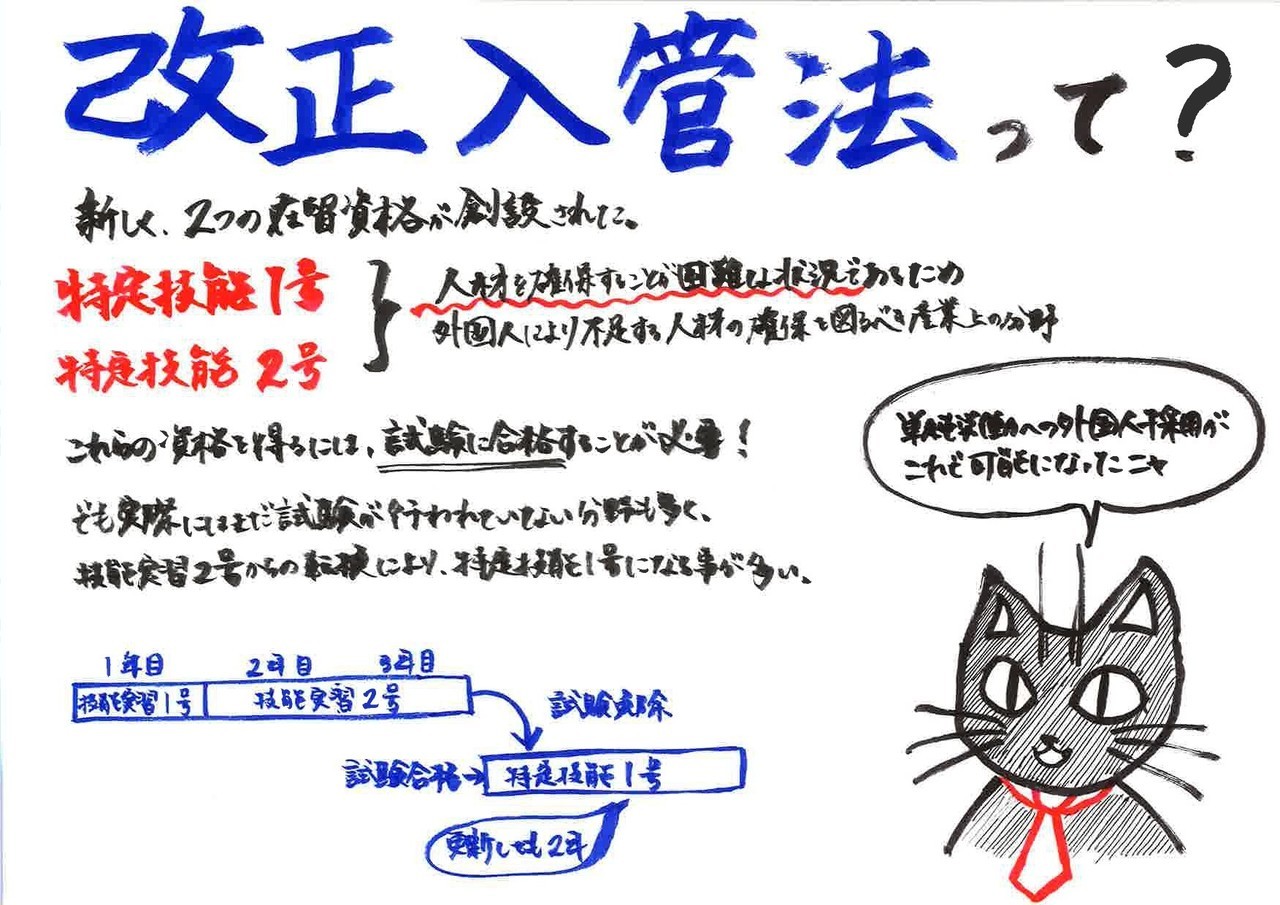 改正入管法って?
新しく、2つの在留資格が創設された。
特定技能1号
特定技能2号
人材を確保することが困難な状況であるため
外国人により不足する人材の確保を図るべき産業上の分野
これらの資格を得るには、試験に合格することが必要!
でも実際にはまだ試験が行われていない分野も多く、
技能実習2号からの転換により、特定技能1号になる事が多い。
単純労働への外国人採用が
これで可能になったニャ
1年目 2年目 3年目
技能実習1号 技能実習2号
試験免除
試験合格→ 特定技能1号
更新しても2年